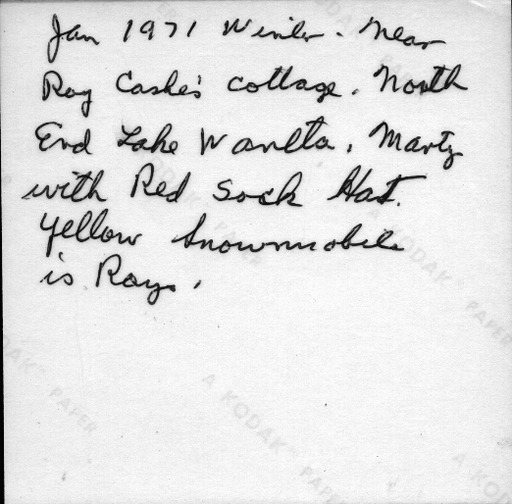 Jan 1971 Winter. Near
Ray Cashe's cottage. North
End Lake Wanita. Marty
with Red Sock Hat.
Yellow Snowmobile
is Rays.
A KODAK PAPER
A KODAK PAPER
A KODAK PAPER